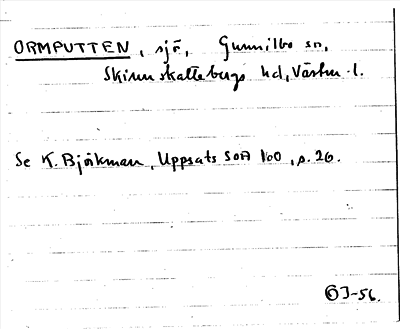 ORMPUTTEN, sjö, Gunnilbo sn,
Skinnskattebergs hd, Västm. l.
Se K. Björkman, Uppsats SOA 160, s. 26.
ÖJ-56.